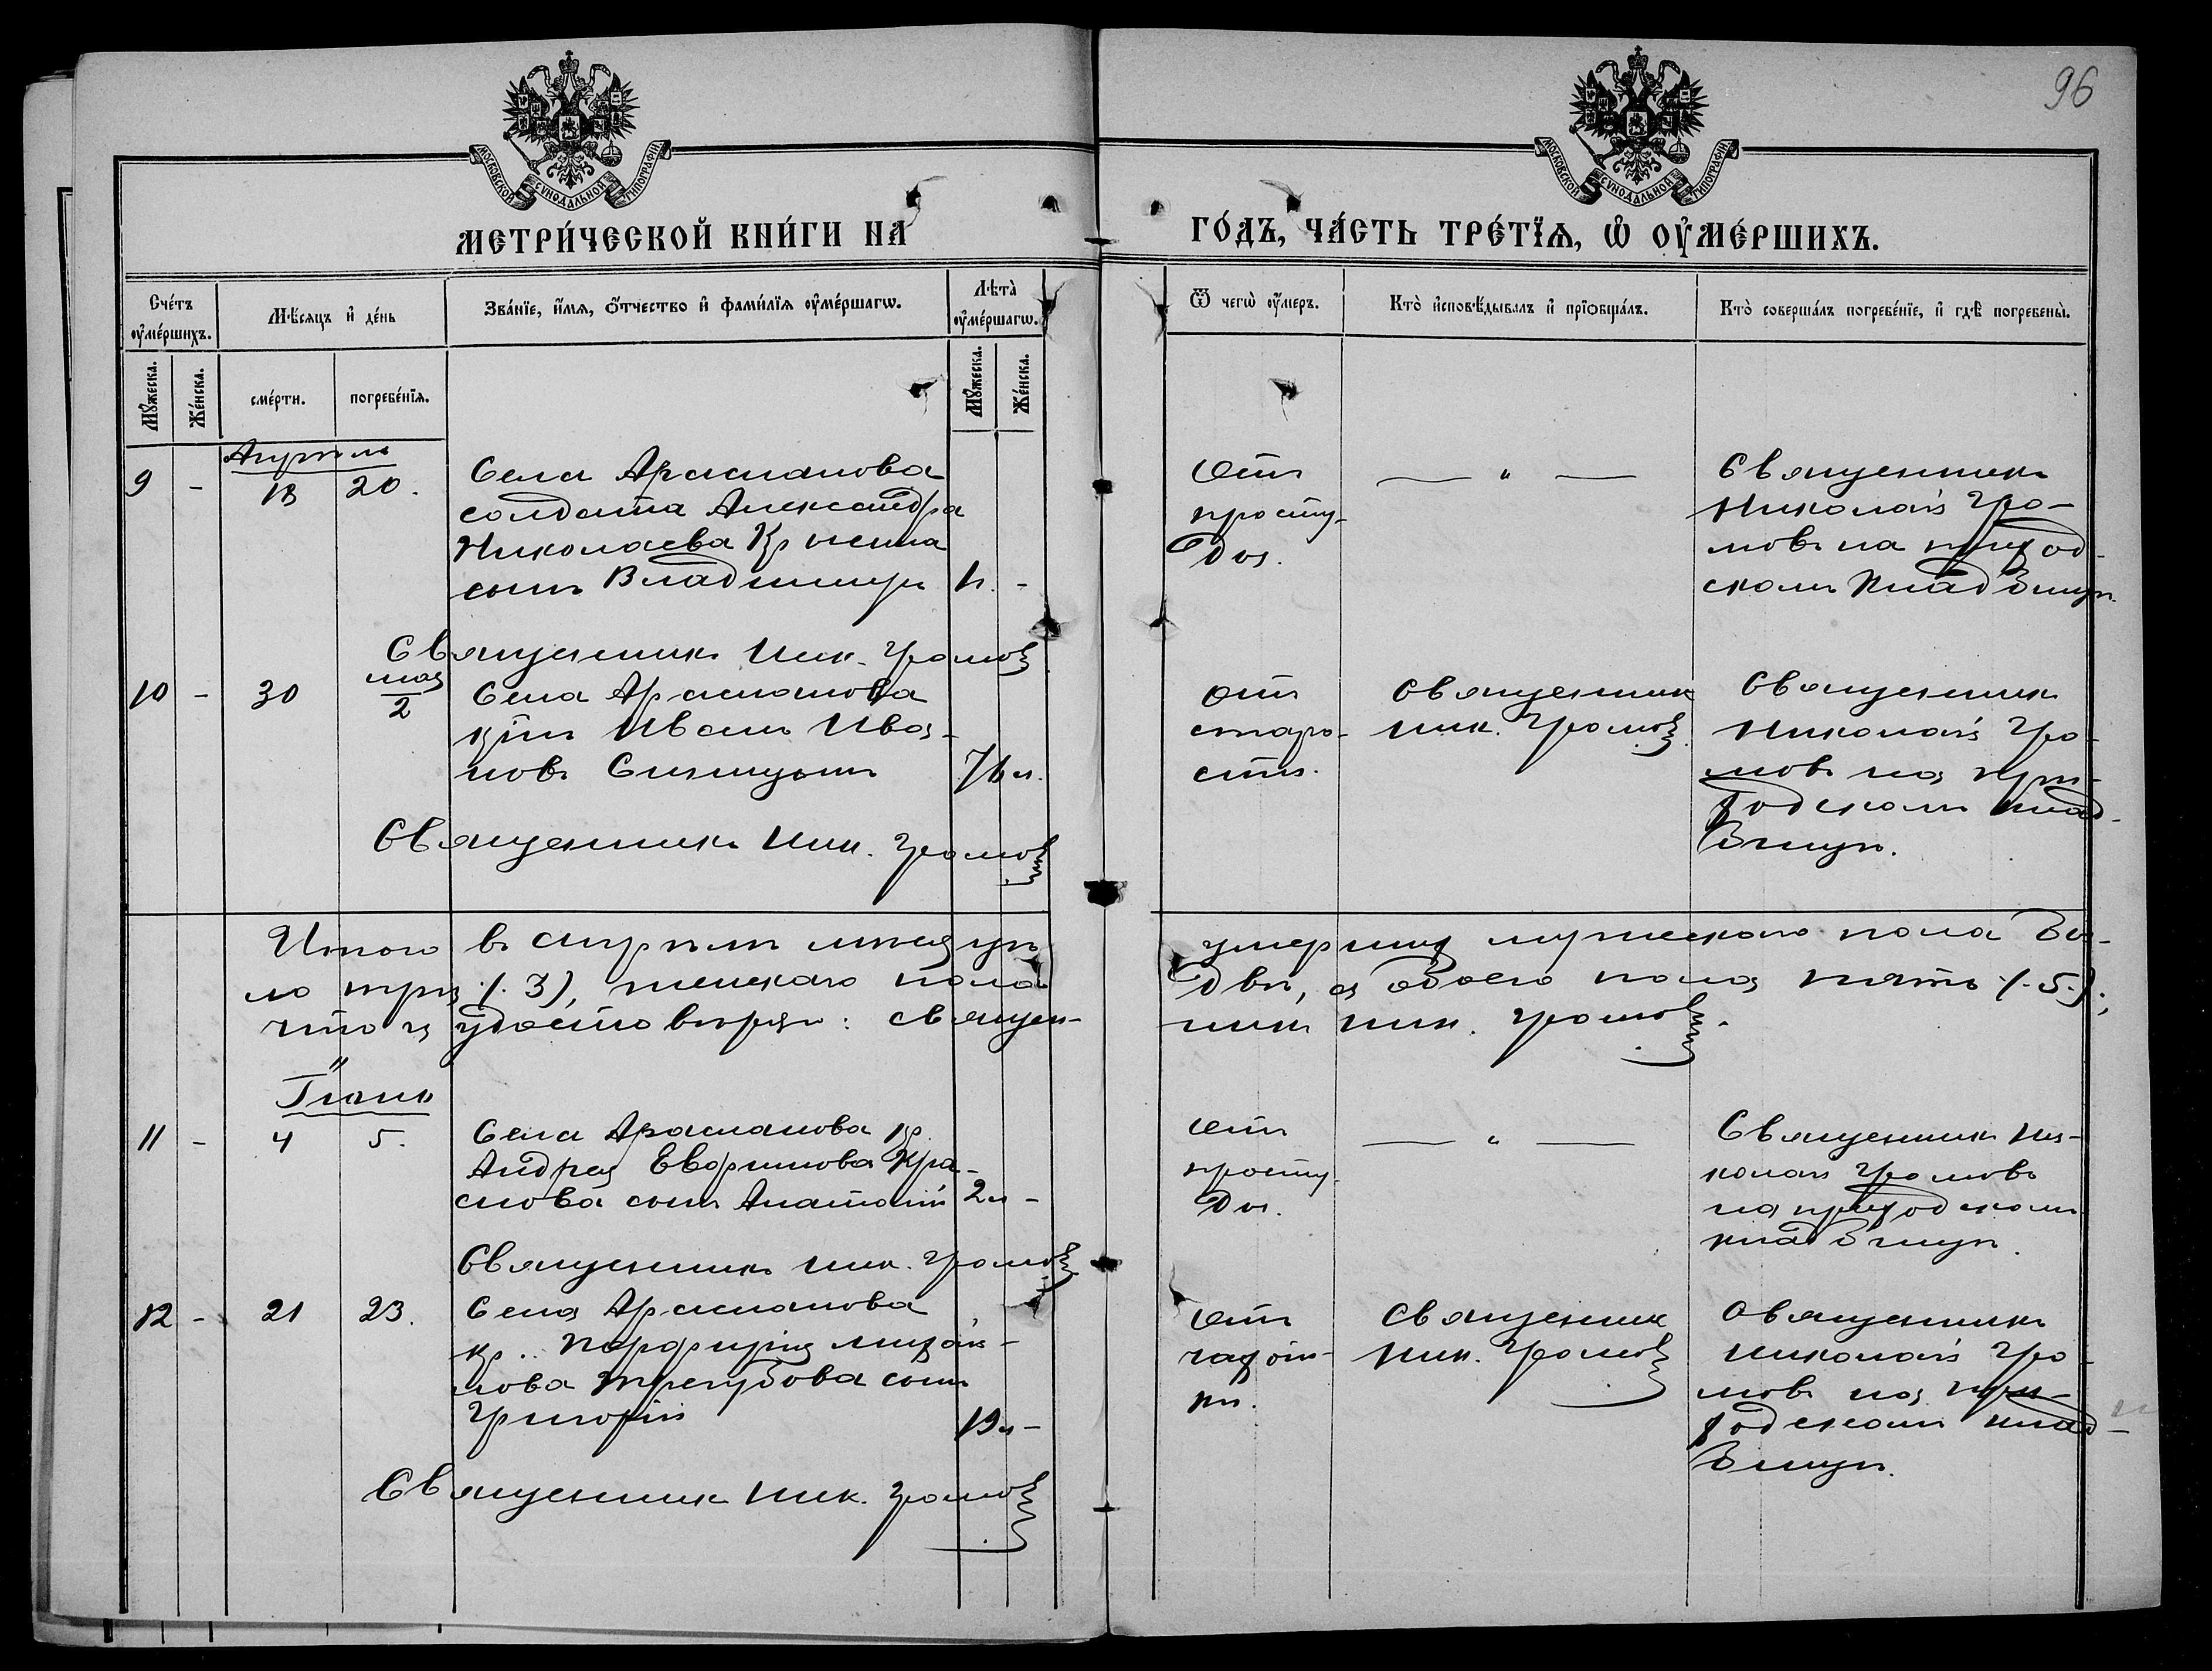 96
МОСКОВСКОЙ СѴНОДАЛЬНОЙ ТИПОГРАФІИ
МОСКОВСКОЙ СѴНОДАЛЬНОЙ ТИПОГРАФІИ
МЕТРИ́ЧЕСКОЙ КНИ́ГИ НА
ГО́ДЪ, ЧА́СТЬ ТРЕ́ТЇѦ, Ѡ҆ ОУ҆МЕ́РШИХЪ.
Сче́тъ оу҆ме́ршихъ.
Мѣ́сяцъ и҆ де́нь
Зва́нїе, и҆́мѧ, ѻ҆́тчество и҆ фами́лїѧ оу҆ме́ршагѡ.
Лѣта̀ оу҆ме́ршагѡ.
Ѿ чегѡ̀ оу҆́меръ.
Кто̀ и҆сповѣ́дывалъ и҆ прїѻбща́лъ.
Кто̀ соверша́лъ погребе́нїе, и҆ гдѣ̀ погребены̀.
Мꙋ́жеска.
Же́нска.
сме́рти.
погребе́нїѧ.
Мꙋ́жеска.
Же́нска.
Апрѣль
9 - 18 20. Села Арасланова
солдата Александра
Николаева
сынъ Владимиръ -
Отъ
просту-
ды.
— „ —
Священникъ
Николай Гро-
мовъ на приход-
скомъ кладбищѣ.
Священникъ Ник. Громов
10 - 30 мая 2 Села Арасланова
кр-нъ Иванъ Ива-
новъ
отъ
старо-
сти.
Священник
Ник. Громов
Священникъ
Николай Гро-
мовъ на при-
ходскомъ клад-
бищѣ.
Священникъ Ник. Громов
Итого въ апрѣлѣ мѣсяцѣ умерших мужескаго пола бы-
ло три (. 3), женскаго пола двѣ, а обоего пола пять (. 5.);
что и удостовѣряю: священ-
никъ Ник. Громов.
Іюнь
11 - 4 5. Села Арасланова кр.
Андрея Кра-
снова сынъ Анатолій 2 -
Отъ
просту-
ды.
— „ —
Священникъ Ни-
колай Громовъ
на приходскомъ
кладбищѣ.
Священникъ Ник. Громов
12 - 21 23. Села Арасланова
кр. Порфирія Михай-
лова Трегубова сынъ
Григорій 19 -
Отъ
чахот-
ки.
Священник
Ник. Громов
Священникъ
Николай Гро-
мовъ на при-
ходскомъ клад-
бищѣ.
Священник Ник. Громов